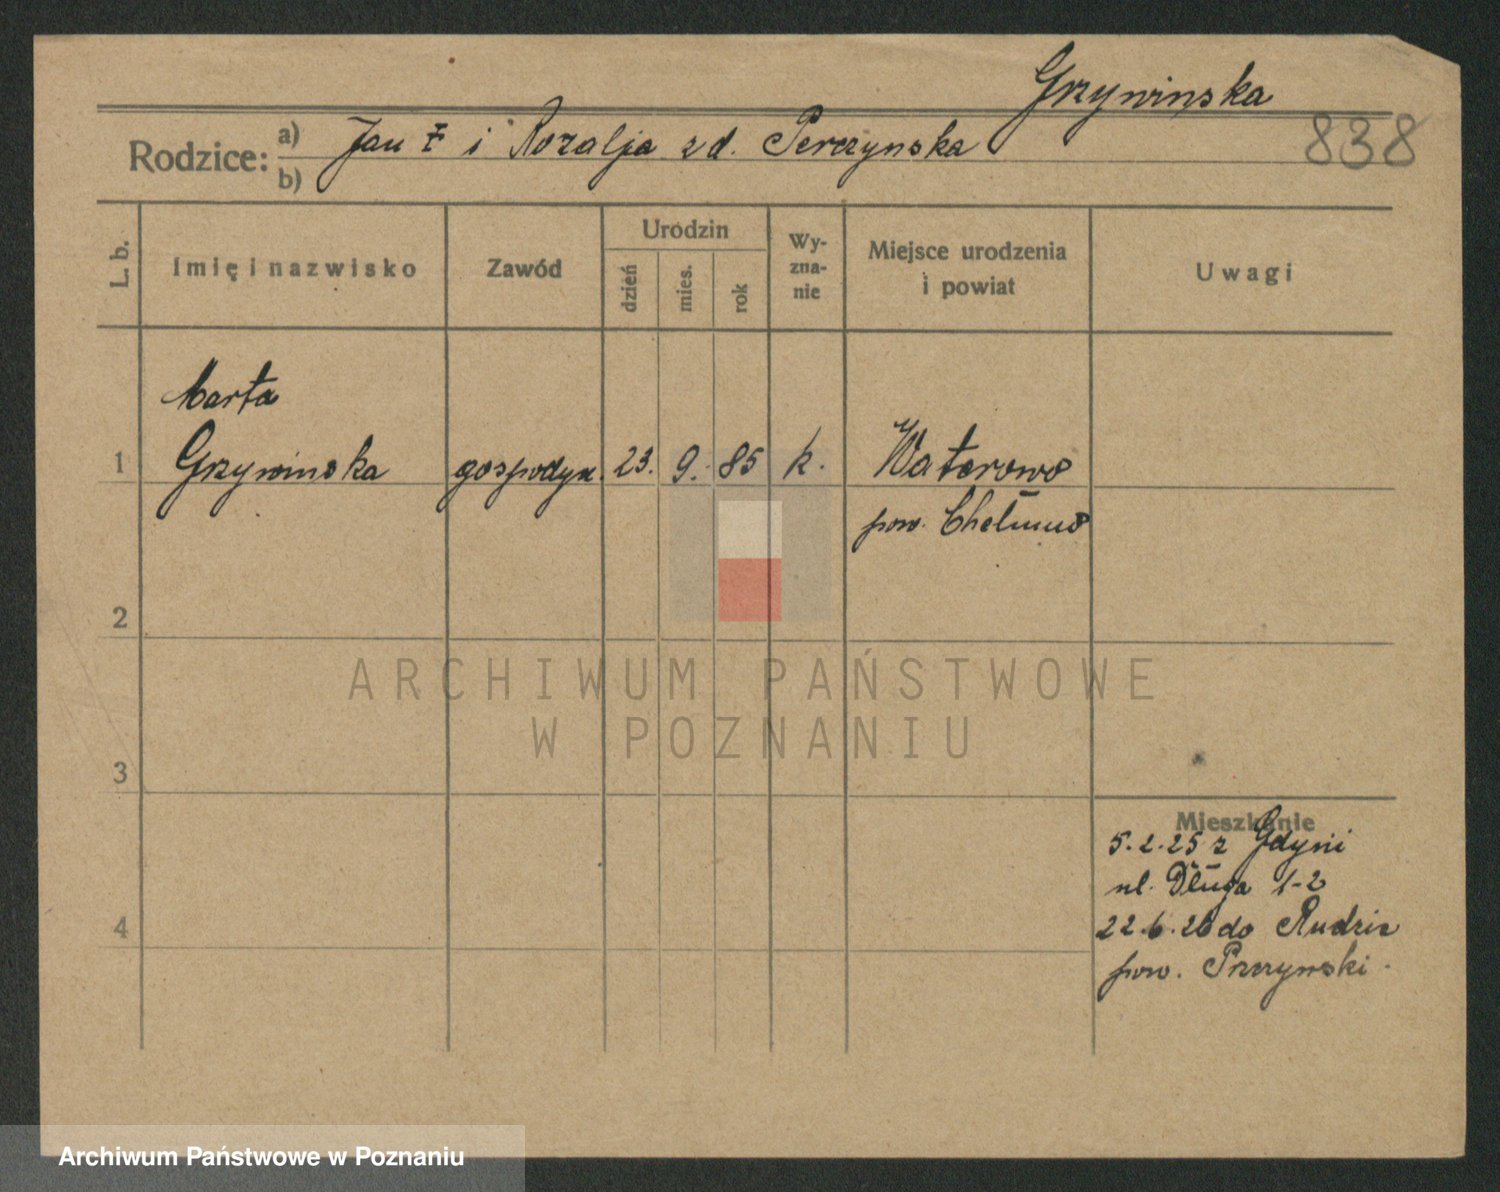 Grzywinska
838
Rodzice: a) Jan i Rozalja zd. Perczynska
b)
L. b.
Imię i nazwisko
Zawód
Urodzin
dzień
mies.
rok
Wy-
zna-
nie
Miejsce urodzenia
i powiat
Uwagi
Marta
1 Grzywinska gospodyn. 23. 9. 85 k. Watorowo
pow. Chełmno
2
ARCHIWUM PAŃSTWOWE
W POZNANIU
3
Mieszkanie
5.2.25 z Gdyni
ul. Długa 1-2
22.6.26 do Rudzie
4
pow.
Archiwum Państwowe w Poznaniu